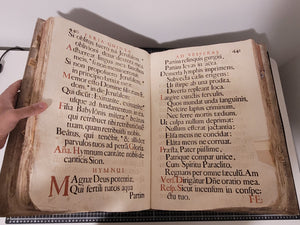 FERIA QUINTA
Si oblítus fúero tui Jerúsalem,
Adhǽreat lingua mea fáucibus
meis,
Si non proposúero Jerúsalem,
in princípio lætítiæ meæ.
Memor esto Dómine filiórum
Edom, in die Jerúsalem:
Qui dicunt: Exinaníte, exinaníte
usque ad fundaméntum in ea.
Filia Babylónis mísera: beátus,
qui retríbuet tibi retributiónem
tuam, quam retribuísti nobis.
Beátus, qui tenébit, & allídet
párvulos tuos ad petram. Glória.
Ana. Hymnum cantáte nobis de
cánticis Sion.
HYMNUS
Magnæ Deus poténtiæ,
Qui fértili natos aqua
Partim
AD VESPERAS
Partim relínquis gúrgiti,
Partim levas in áera.
Demérsa lymphis ímprimens,
Subvécta cælis érigens:
Ut stirpe ab una pródita,
Divérsa répleant loca.
Largíre cunctis sérvulis,
Quos mundat unda sánguinis,
Nescíre lapsus críminum,
Nec ferre mortis tǽdium.
Ut culpa nullum déprimat:
Nullum éfferat jactántia:
Elísa mens ne cóncidat:
Eláta mens ne córruat.
Præsta, Pater piíssime,
Patríque compar únice,
Cum Spíritu Paráclito,
Regnans per omne sǽculū. Am.
Vers. Dirigátur Dómine orátio mea.
Resp. Sicut incénsum in conspé-
ctu tuo.